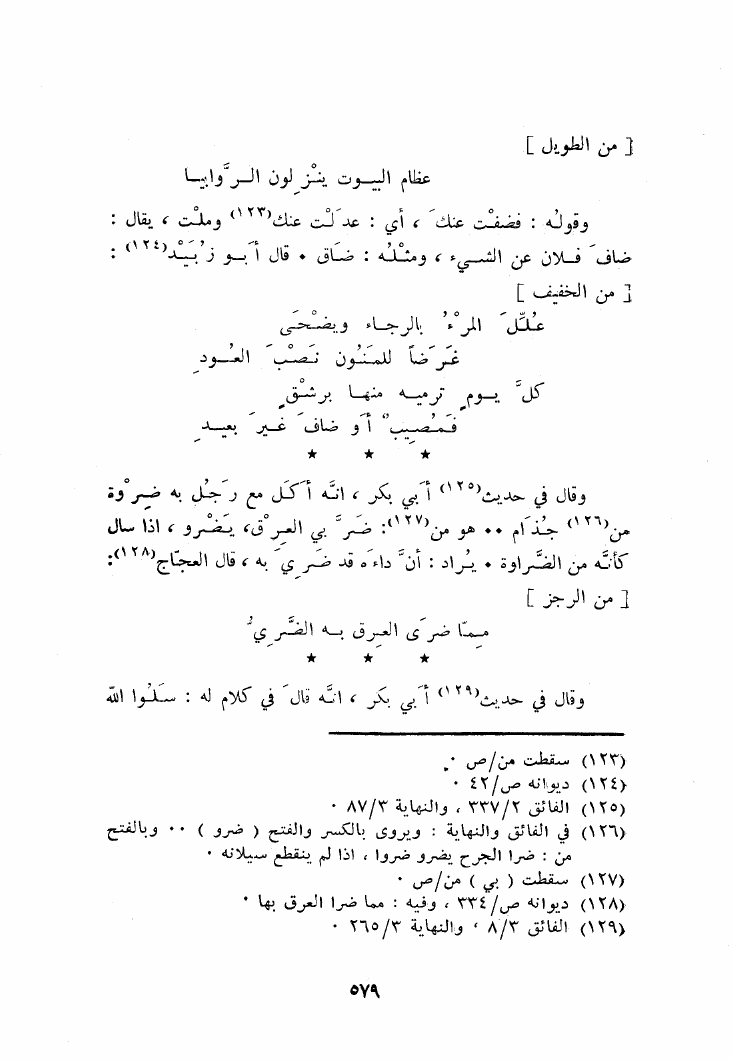 [ من الطويل ]
عظام البيوت ينْزِلون الرَّوابيا
وقولُه : فضفْت عنكَ ، أي : عدَلْت عنك(١٢٣) وملْت ، يقال :
ضافَ فلان عن الشيء ، ومثْلُه : ضَاق ٠ قال أَبو زُبَيْد(١٢٤) :
[ من الخفيف ]
عُلِّلَ المرْءُ بالرجاء ويضْحَى
غَرَضاً للمَنُون نَصْبَ العُودِ
كلَّ يومٍ ترميه منها برشْقٍ
فَمُصِيبٌ أَو ضافَ غيرَ بعيدِ
★ ★ ★
وقال في حديث(١٢٥) أَبي بكر ، انَّه أَكَل مع رَجُل به ضِرْوة
من(١٢٦) جُذَام ٠٠ هو من(١٢٧): ضَرَّ بي العِرْق، يَضْرو ، اذا سال
كأنَّه من الضَّراوة ٠ يُراد : أنَّ داءَه قد ضَرِيَ به ، قال العجّاج(١٢٨):
[ من الرجز ]
مِمّا ضرَى العِرق به الضَّرِيُّ
★ ★ ★
وقال في حديث(١٢٩) أَبي بكر ، انَّه قالَ في كلام له : سَلُوا الله
(١٢٣) سقطت من/ص ٠
(١٢٤) ديوانه ص/٤٢ ٠
(١٢٥) الفائق ٣٣٧/٢ ، والنهاية ٨٧/٣ ٠
(١٢٦) في الفائق والنهاية : ويروى بالكسر والفتح ( ضرو ) ٠٠ وبالفتح
من : ضرا الجرح يضرو ضروا ، اذا لم ينقطع سيلانه ٠
(١٢٧) سقطت ( بي ) من/ص ٠
(١٢٨) ديوانه ص/٣٣٤ ، وفيه : مما ضرا العرق بها ٠
(١٢٩) الفائق ٨/٣ ، والنهاية ٢٦٥/٣ ٠
٥٧٩